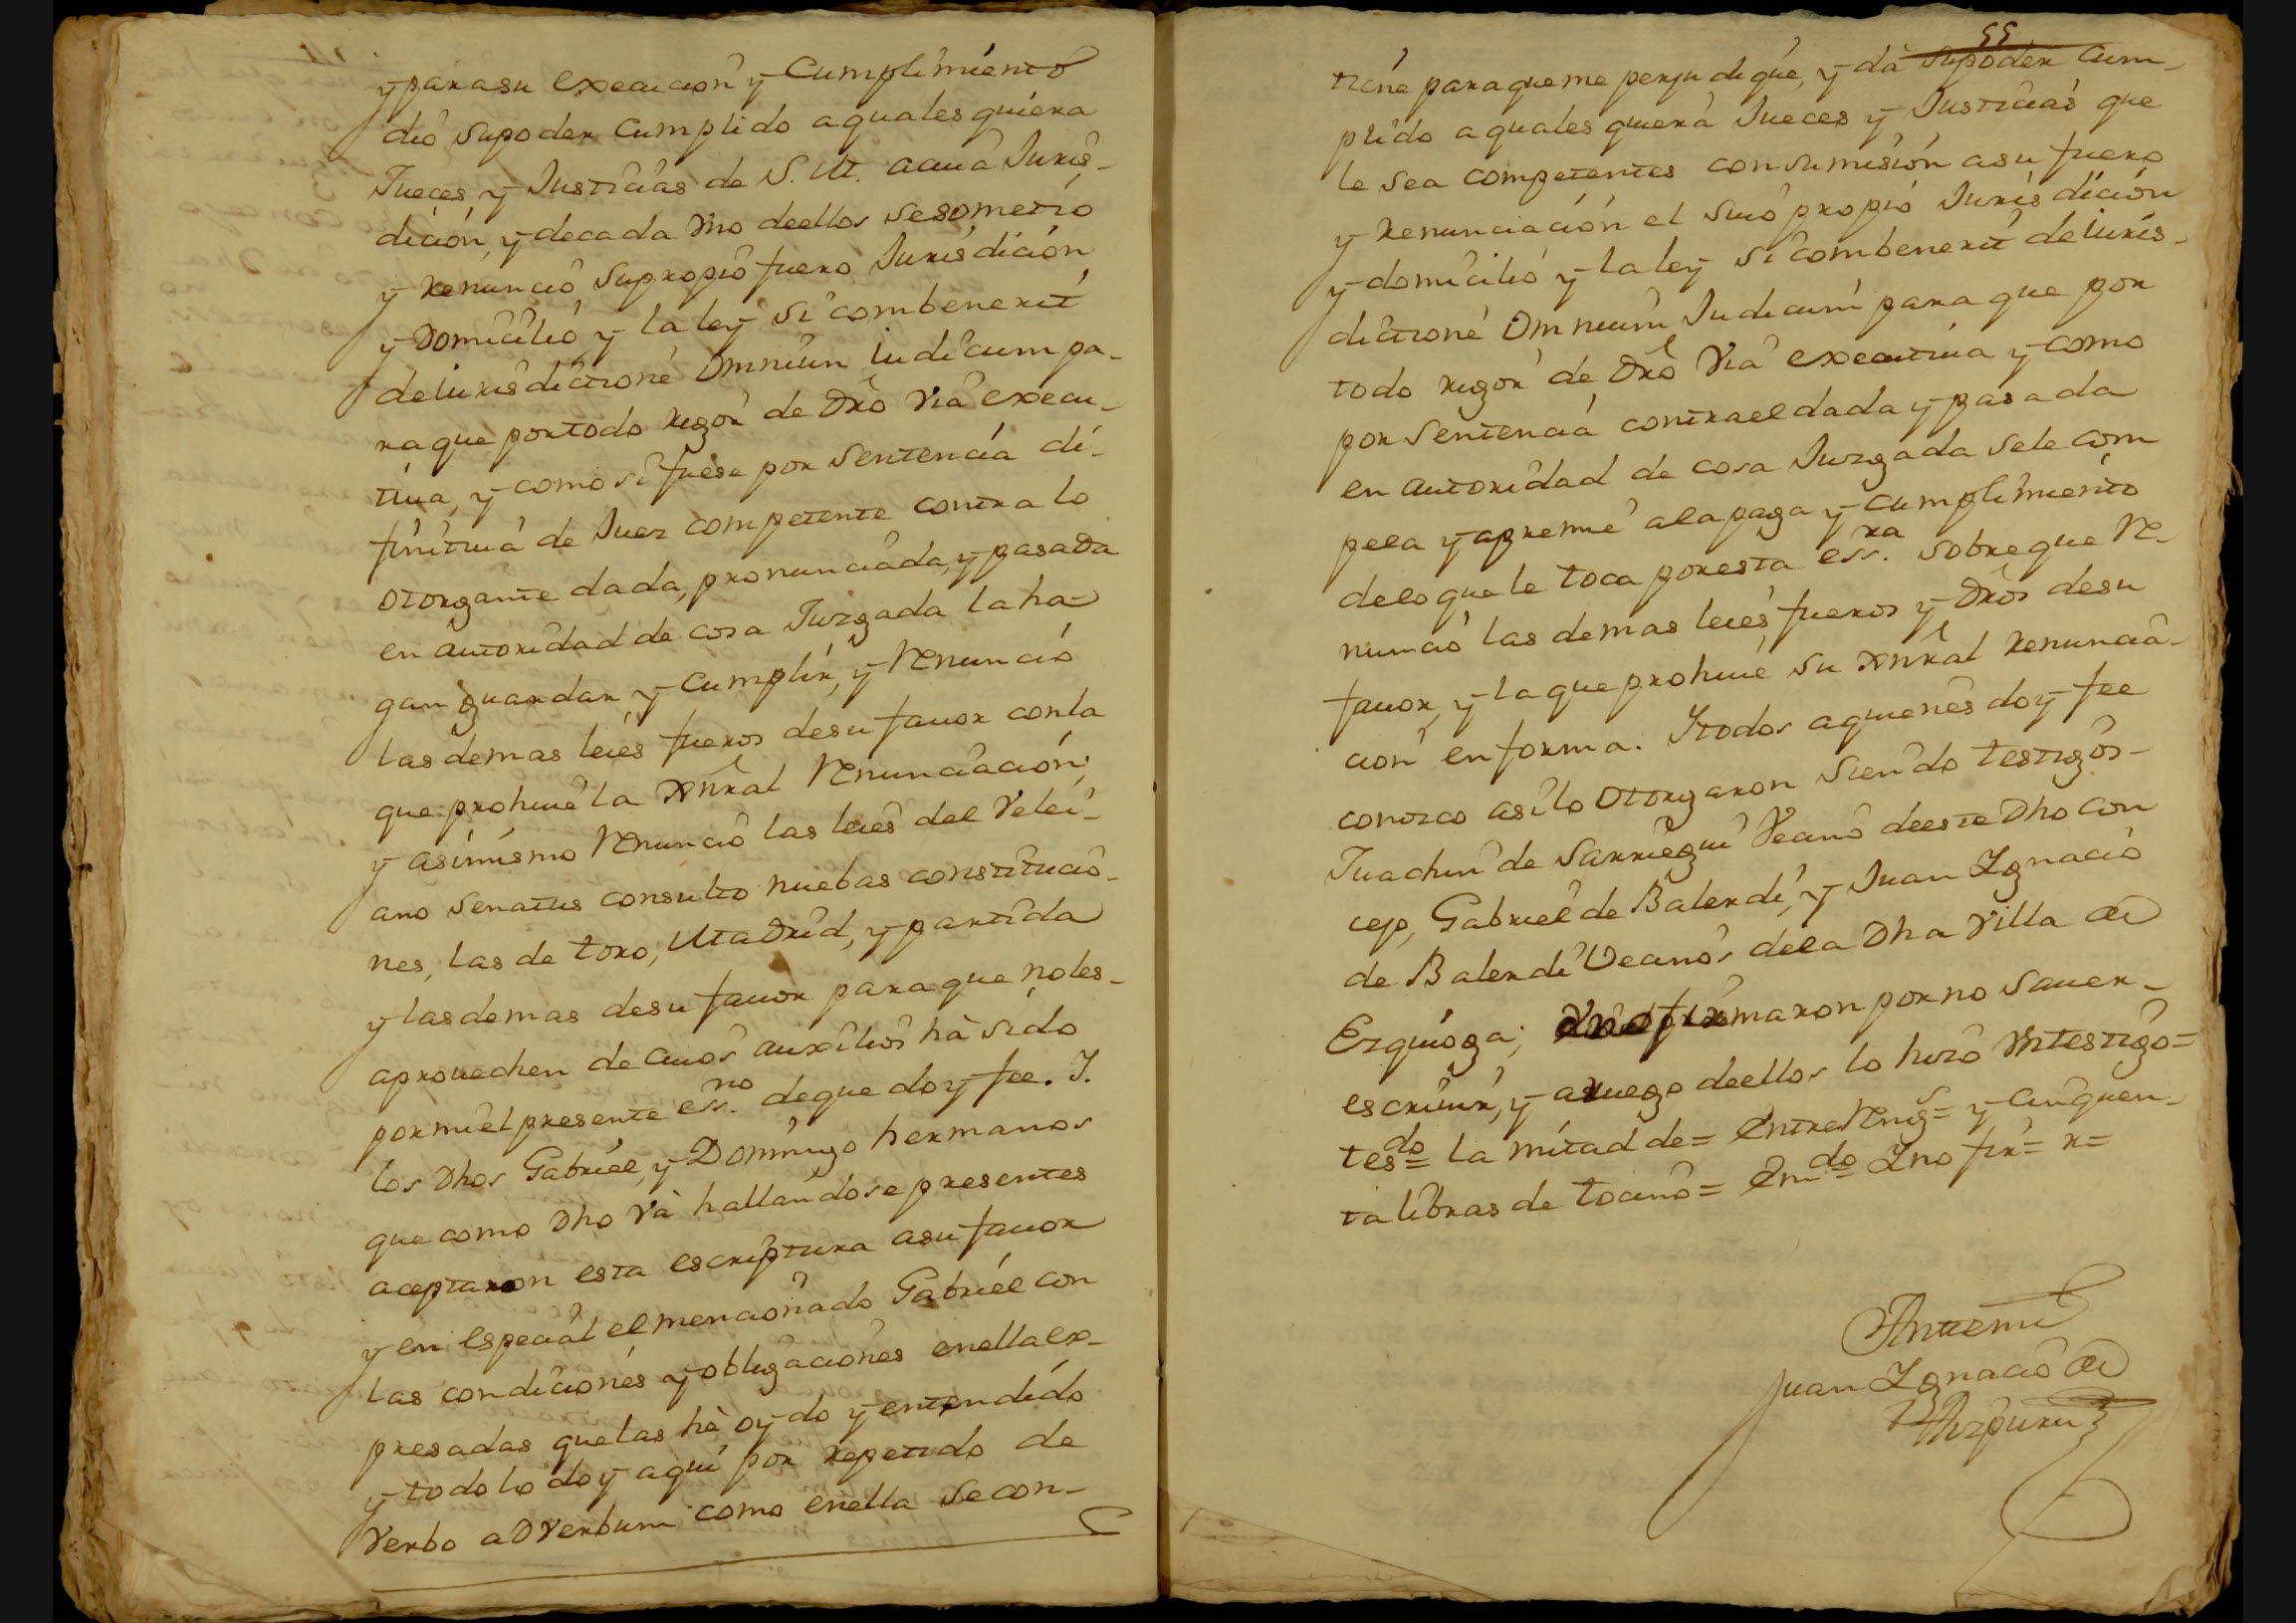 y para su execucion y Cumplimiento
dió su poder Cumplido a quales quiera
Jueces, y Justicias de S. M. a cuia Juris-
dición, y de cada vno de ellos se sometió
y renunció su propio fuero Jurisdición
y Domicilio, y la ley si combenerit
de iurisdictione Omniun iudicum pa-
ra que por todo rigor de dro via execu-
tiua, y como si fuese por Sentencia di-
finitiua de Juez competente contra lo
otorgante dada, pronunciada, y pasada
en autoridad de cosa Juzgada la ha-
gan guardar y Cumplir, y Renunció
las demas leies fueros de su fauor con la
que prohiue la xnral Renunciación;
y asimismo Renunció las leies del Velei-
ano Senatus consulto nuebas constitucio-
nes, las de toro, Madrid, y partida
y las demas de su fauor para que no les-
aprouechen de cuios auxilios hà sido
por mi el presente ess.no de que doy fee. Y.
los Dhos Gabriel, y Domingo hermanos
que como Dho và hallandose presentes
aceptaron esta escriptura a su fauor
y en especial el mencionado Gabriel con
las condiciones y obligaciones en ella ex-
presadas que las hà oydo y entendido
y todo lo doy aqui por repetido de
Verbo adverbum como en ella se con-
55
tiene para que me perjudique, y dà su poder Cum-
plido a quales quiera Jueces y Justicias que
le sea competentes con sumisión a su fuero
y renunciación el suio propio Jurisdición
y domicilio y la ley si combenerit de iuris-
dictione Omnium Judicum para que por
todo rigor de Dro via executiua y como
por Sentencia contra el dada y pasada
en autoridad de cosa Juzgada se le com
pela y apremie a la paga y cumplimiento
de lo que le toca por esta ess.ra sobre que Re-
nunció las demas leies fueros y dros de su
fauor, y la que prohiue su xnral renuncia-
ción en forma. Y todos a quienes doy fee
conozco asi lo otorgaron siendo testigos-
Juachin de Sarriegui Vecino de este Dho con
cejo, Gabriel de Balerdi, y Juan Ignacio
de Balerdi Vecinos de la Dha Villa de
Ezquioga; y no firmaron por no sauer-
escriuir, y a ruego de ellos lo hizo vn testigo=
tesdo= la mitad de= Entre Rengs= y cinquen-
ta libras de tocino= Emdo= Y no fir= r=
Ante mi
Juan Ignacio de
Aizpuru